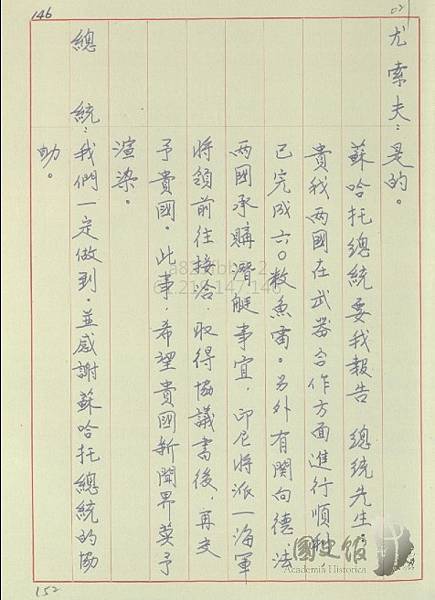 146
021
尤索夫：是的。
蘇哈托總統要我報告　總統先生，
貴我兩國在武器合作方面進行順利
已完成六〇教魚雷。另外有關向德、法
兩國承購潛艇事宜，印尼將派一海軍
將領前往接洽，取得協議書後，再交
予貴國。此事，希望貴國新聞界莫予
渲染。
總　統：我們一定做到。並感謝蘇哈托總統的協
助。
國史館
Academia Historica
152